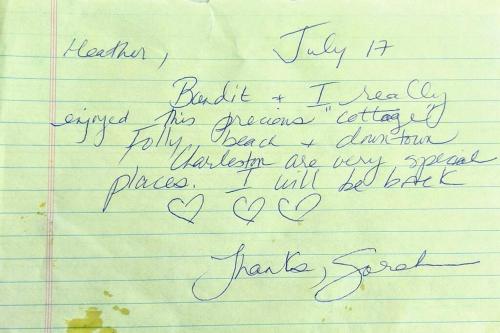 Heather, July 17
Bandit + I really
enjoyed this precious "cottage"
Folly beach + downtown
Charleston are very special
places. I will be back
♡ ♡ ♡
Thanks, Sarah